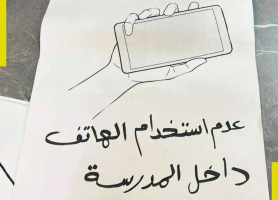 عدم استخدام الهاتف
داخل المدرسة